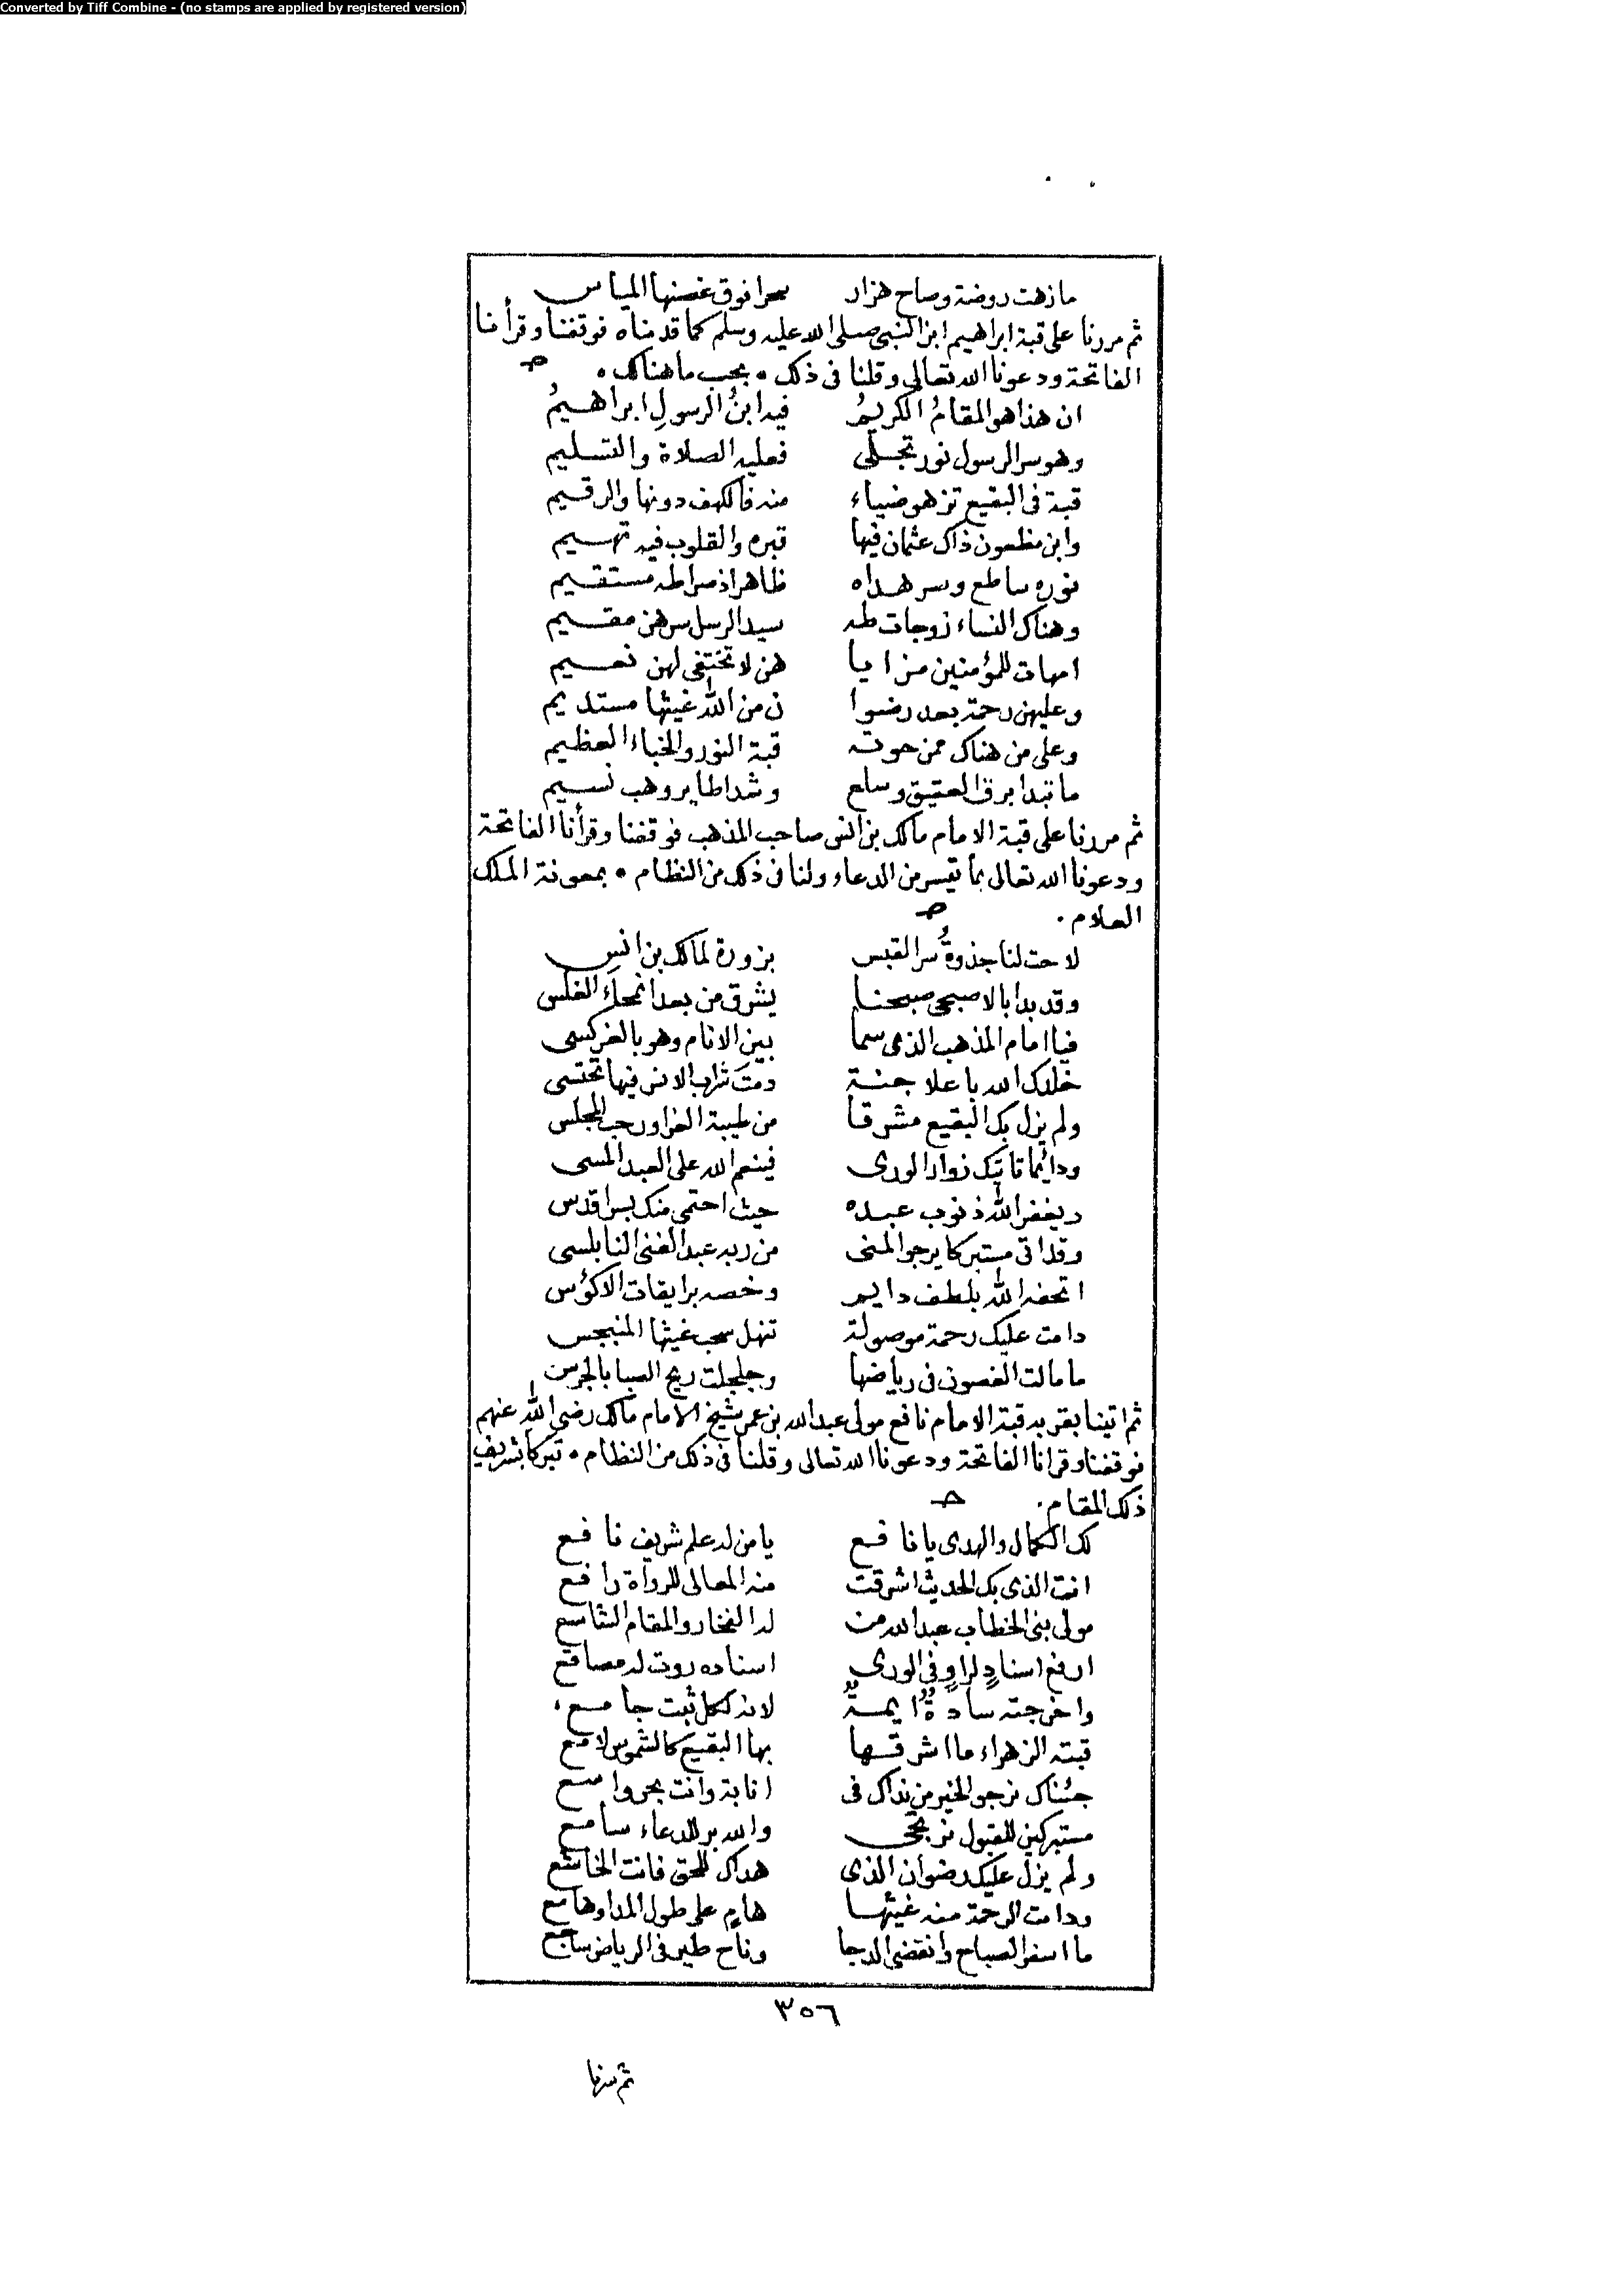 Converted by Tiff Combine - (no stamps are applied by registered version)
ما زهت روضة وصاح هزار سحرا فوق غصنها المياس
ثم مررنا على قبة ابراهيم ابن النبي صلى الله عليه وسلم كما قدمناه فوقفنا وقرأنا
الفاتحة ودعونا الله تعالى وقلنا في ذلك • بحسب ما هناك •
ان هذا هو المقامُ الكريمُ فيه ابنُ الرسولِ ابراهيمُ
وهو سر الرسول نور تجلى فعليه الصلاة والتسليم
قبة في البقيع تزهو ضياء منه فالكهف دونها والرقيم
وابن مظعون ذاك عثمان فيها قبره والقلوب فيه تهيم
نوره ساطع وسر هداه ظاهر اذ صراطه مستقيم
وهناك النساء زوجات طه سيد الرسل سرهن مقيم
امهات للمؤمنين مزايا هن لا تختفي لهن نعيم
وعليهن رحمة بعد رضوا ن من الله غيثها مستديم
وعلى من هناك ممن حوته قبة النور والخباء العظيم
ما تبدا برق العقيق وسلع وشدا طاير وهب نسيم
ثم مررنا على قبة الامام مالك بن انس صاحب المذهب فوقفنا وقرأنا الفاتحة
ودعونا الله تعالى بما تيسر من الدعاء ولنا في ذلك من النظام • بمعونة الملك
العلام •
لاحت لنا جذوةُ سر القبس بزورة لمالك بن انس
وقد بدا بالاصبحي صبحنا يشرق من بعد انمحاء الغلس
فيا امام المذهب الذي سما بين الانام وهو بالعز كسى
خلدك الله باعلا جنة دمتَ شراب الانس فيها تحتسى
ولم يزل بك البقيع مشرقا من طيبة الغرا ورحب المجلس
ودائما تاتيك زوار الورى فينعم الله على العبد المسى
ويغفر الله ذنوب عبده حيث احتمى منك بسر اقدس
وقد اتى مستبركا يرجو المنى من ربه عبد الغني النابلسى
اتحفه الله بلطف دايم وخصه برايقات الاكؤس
دامت عليك رحمة موصولة تنهل سحب غيثها المنبجس
ما مالت الغصون في رياضها وجلجلت ريح الصبا بالجرس
ثم اتينا بقربه قبة الامام نافع مولى عبد الله بن عمر شيخ الامام مالك رضي الله عنهم
فوقفنا وقرانا الفاتحة ودعونا الله تعالى وقلنا في ذلك من النظام • تبركا بشريف
ذلك المقام •
لك الكمال والهدى يا نافع يا من له علم شريف نافع
انت الذي بك الحديث اشرقت منه المعالى للرواة رافع
مولى بني الخطاب عبد الله من له الفخار والمقام الشاسع
ارفع اسنادٍ لراوٍ في الورى اسناده روت له مصاقع
واخرجته سادةٌ ايمةٌ لانه لكل ثبت جامع
قبته الزهراء ما اشرقها بها البقيع كالشموس لامع
جئناك نرجو الخير من نداك في انابة وانت بحر واسع
مستبركين للقبول نرتجى والله بر للدعاء سامع
ولم يزل عليك رضوان الذى هداك للحق فانت الخاشع
ودامت الرحمة منه غيثها هامٍ على طول المدا وهامع
ما اسفر الصباح وانقضى الدجا وناح طير في الرياض ساجع
٣٥٦
ثم سرنا